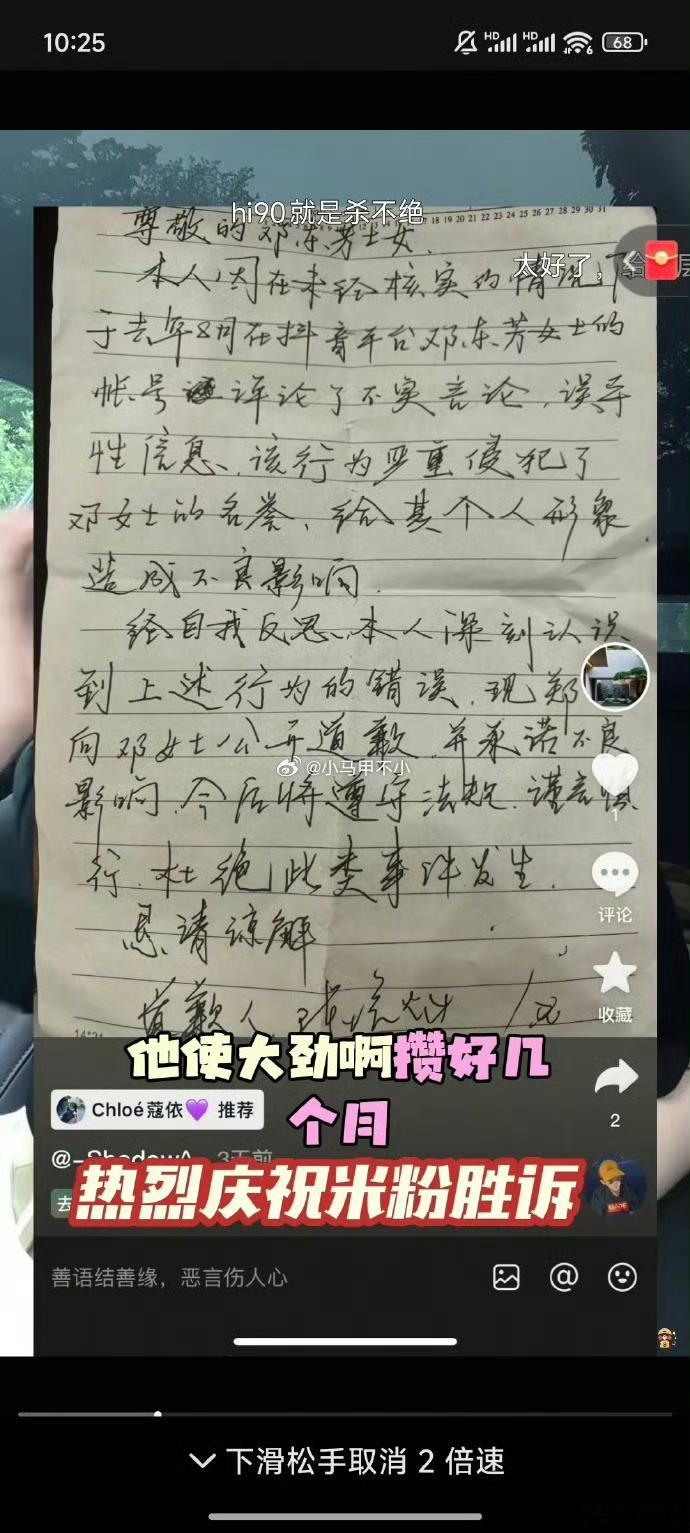 10:25
HD HD 6 68
hi90就是杀不绝
17 18 19 20 21 22 23 24 25 26 27 28 29 30 31
尊敬的邓东芳士女、
太好了，
本人因在未经核实的情况下
于去年8月在抖音平台邓东芳女士的
帐号 评论了不实言论、误导
性信息、该行为严重侵犯了
邓女士的名誉、给其个人形象
造成不良影响.
经自我反思、本人深刻认识
到上述行为的错误、现郑
向邓女士公开道歉、并承诺不良
@小马甲不小
影响、今后将遵守法规、谨言慎
1
行、杜绝此类事件发生.
评论
恳请谅解
收藏
道歉人
他使大劲啊攒好几
个月
Chloé蔻依💜 推荐
2
@-ShadowA 3天前
去
热烈庆祝米粉胜诉
善语结善缘，恶言伤人心
下滑松手取消 2 倍速